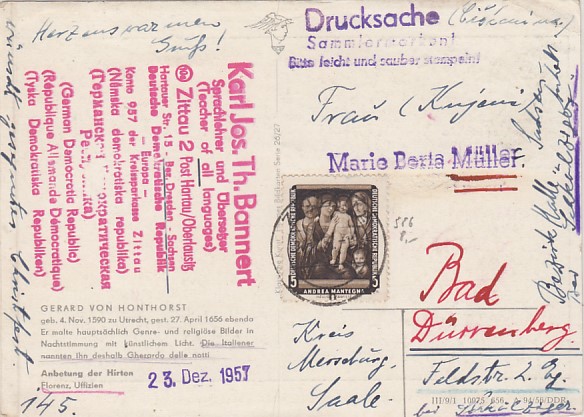 Herzenswarmen
Gruß!
wünscht gesegnetes Christfest.
Drucksache
Sammlermarken!
Bitte leicht und sauber stempeln!
Karl Jos. Th. Bannert
Sprachlehrer und Übersetzer
(Teacher of all languages)
Zittau 2 Post Hartau/Oberlausitz
Hartauer Str. 15 - Bez. Dresden - Sachsen
Deutsche Demokratische Republik
- Europa -
Konto 957 der Kreissparkasse Zittau
(Německá demokratická republika)
(German Democratic Republic)
(République Allemande Démocratique)
(Tyska Demokratiska Republiken)
Frau
Marie Berta Müller
DEUTSCHE DEMOKRATISCHE REPUBLIK
5 5
ANDREA MANTEGNA
586
Bad
Dürrenberg.
Feldstr. 2
bei
Kreis
Merseburg,
Saale.
Bezirk Halle
GERARD VON HONTHORST
geb. 4. Nov. 1590 zu Utrecht, gest. 27. April 1656 ebenda
Er malte hauptsächlich Genre- und religiöse Bilder in
Nachtstimmung mit künstlichem Licht. Die Italiener
nannten ihn deshalb Gherardo delle notti
Anbetung der Hirten
Florenz, Uffizien
23. Dez. 1957
145.